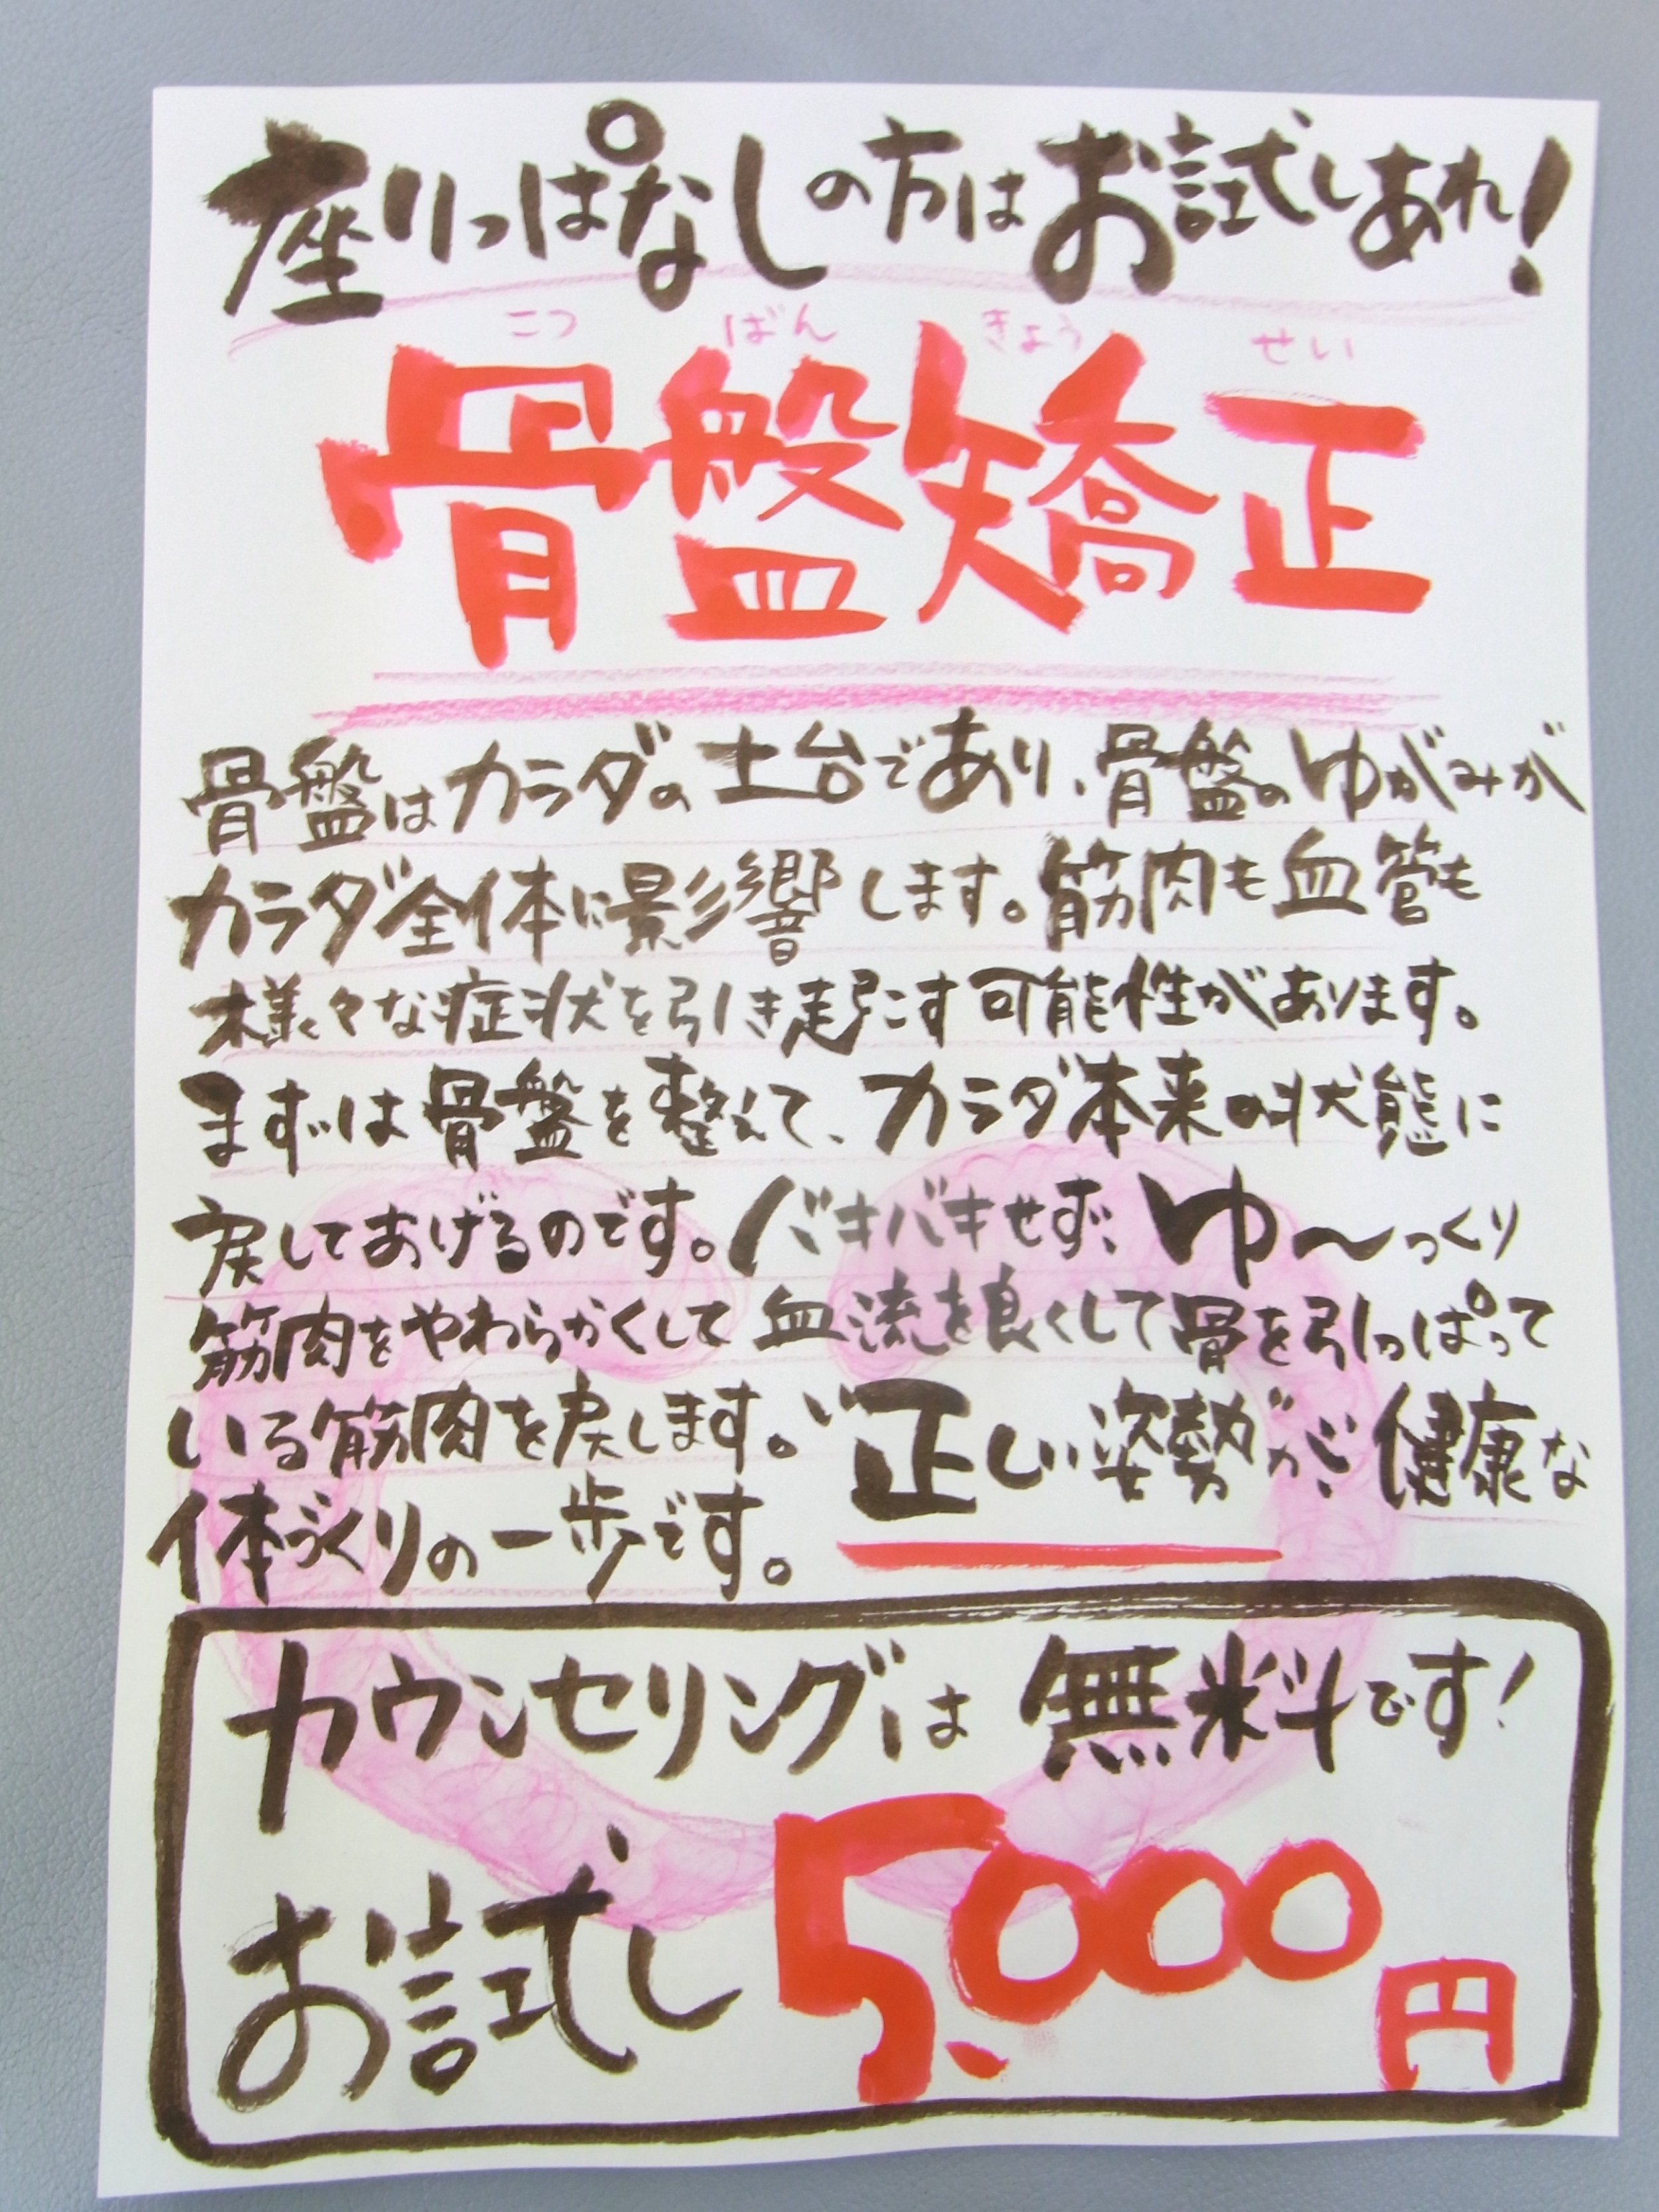 座りっぱなしの方はお試しあれ!
こつ ばん きょう せい
骨盤矯正
骨盤はカラダの土台であり、骨盤のゆがみが
カラダ全体に影響します。筋肉も血管も
様々な症状を引き起こす可能性があります。
まずは骨盤を整えて、カラダ本来の状態に
戻してあげるのです。バキバキせず、ゆ〜っくり
筋肉をやわらかくして血流を良くして骨を引っぱって
いる筋肉を戻します。"正しい姿勢"が、健康な
体づくりの一歩です。
カウンセリングは無料です!
お試し5,000円